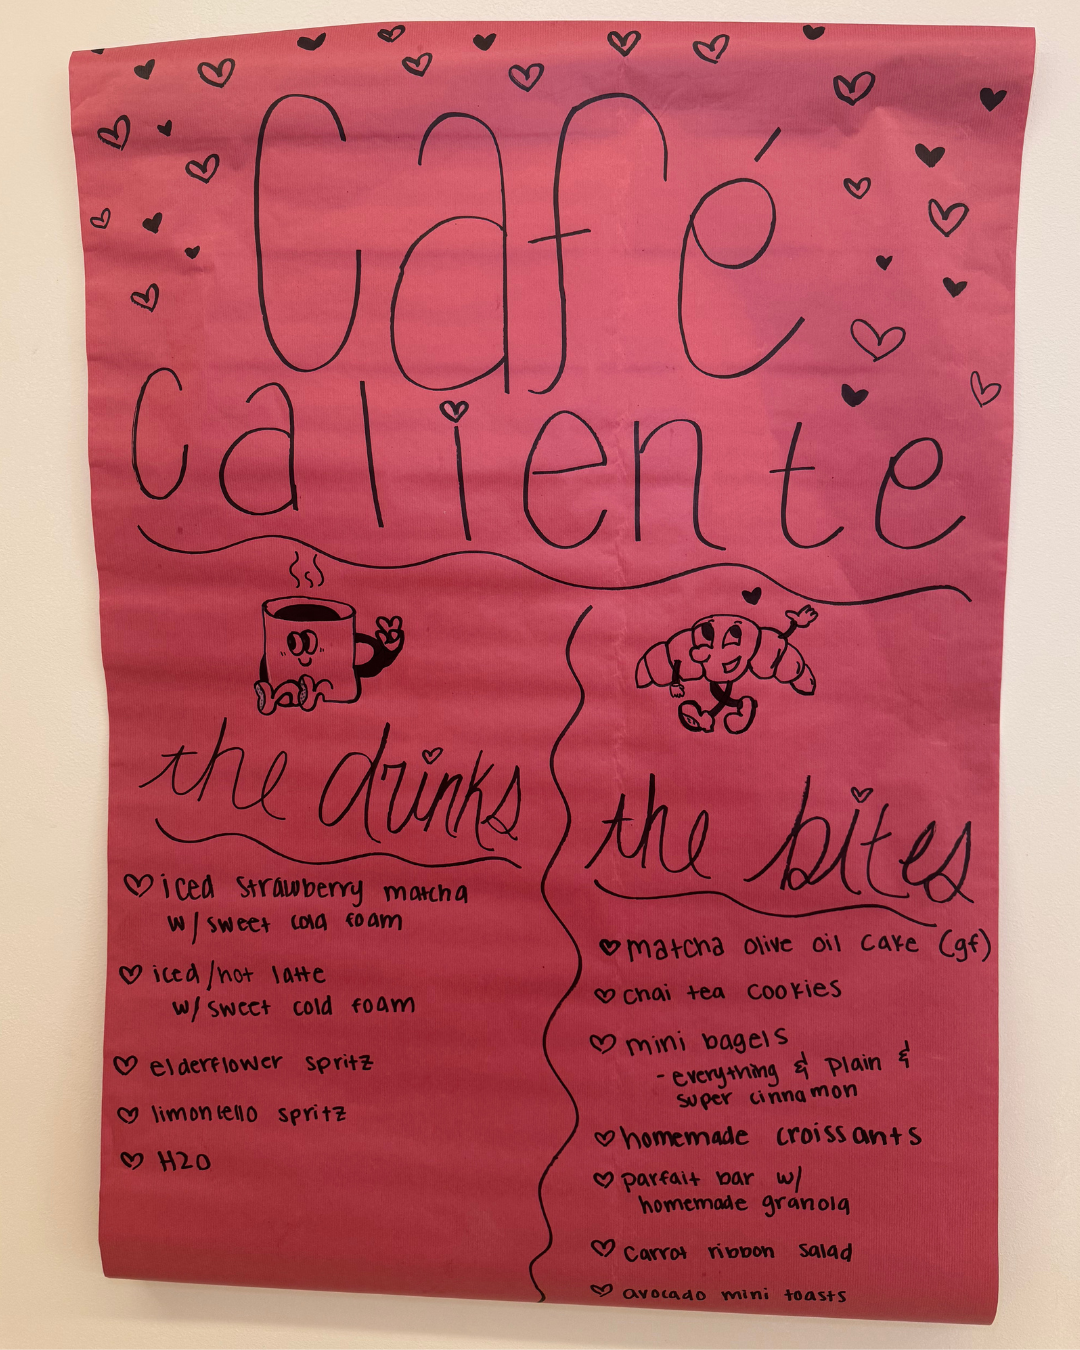 Café
Caliente
the drinks
iced strawberry matcha
w/ sweet cold foam
iced/hot latte
w/ sweet cold foam
elderflower spritz
limoncello spritz
H2O
the bites
matcha olive oil cake (gf)
chai tea cookies
mini bagels
- everything & plain &
super cinnamon
homemade croissants
parfait bar w/
homemade granola
carrot ribbon salad
avocado mini toasts